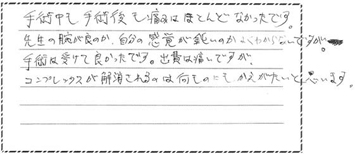 手術中も手術後も痛みはほとんどなかったです。
先生の腕が良のか、自分の感覚が鈍いのかよくわからないですが。
手術は受けて良かったです。出費は痛いですが、
コンプレックスが解消されるのは何ものにもかえがたいと思います。